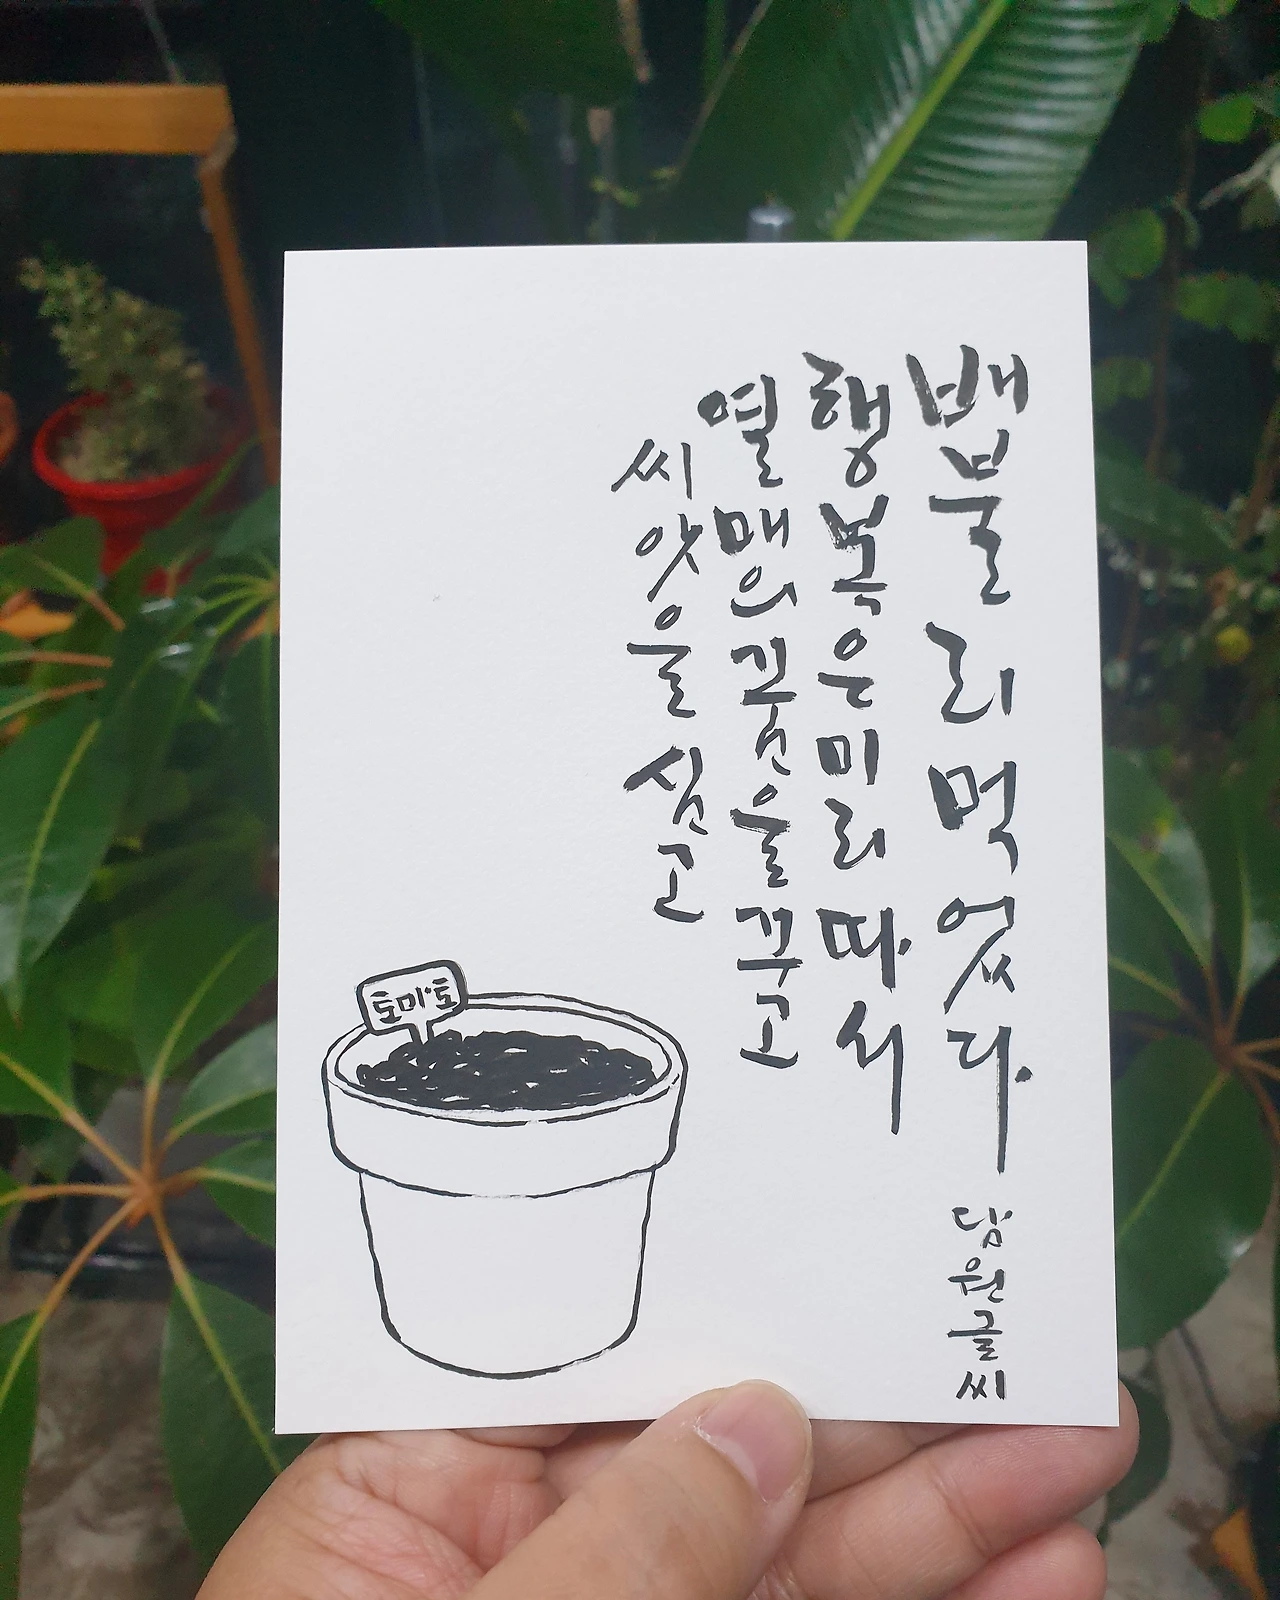 씨앗을 심고
열매의 꿈을 꾸고
행복은 미리 따서
배불리 먹었다.
담원글씨
토마토